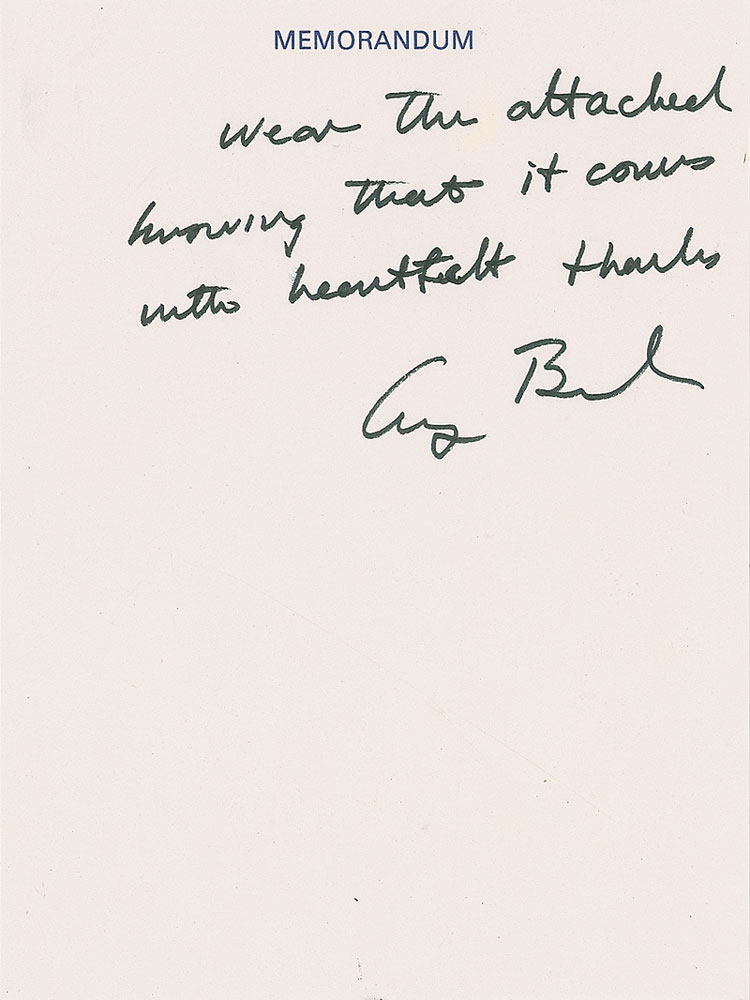 MEMORANDUM
wear the attached
knowing that it comes
with heartfelt thanks
G Bush